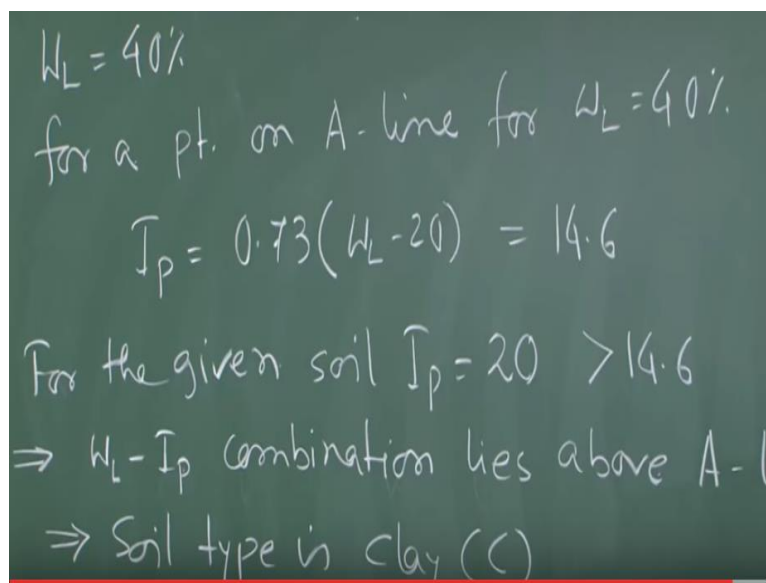 W_L = 40%
for a pt. on A-line for W_L = 40%.
I_p = 0.73(W_L-20) = 14.6
For the given soil I_p = 20 > 14.6
⇒ W_L-I_p combination lies above A-
⇒ Soil type is clay (C)